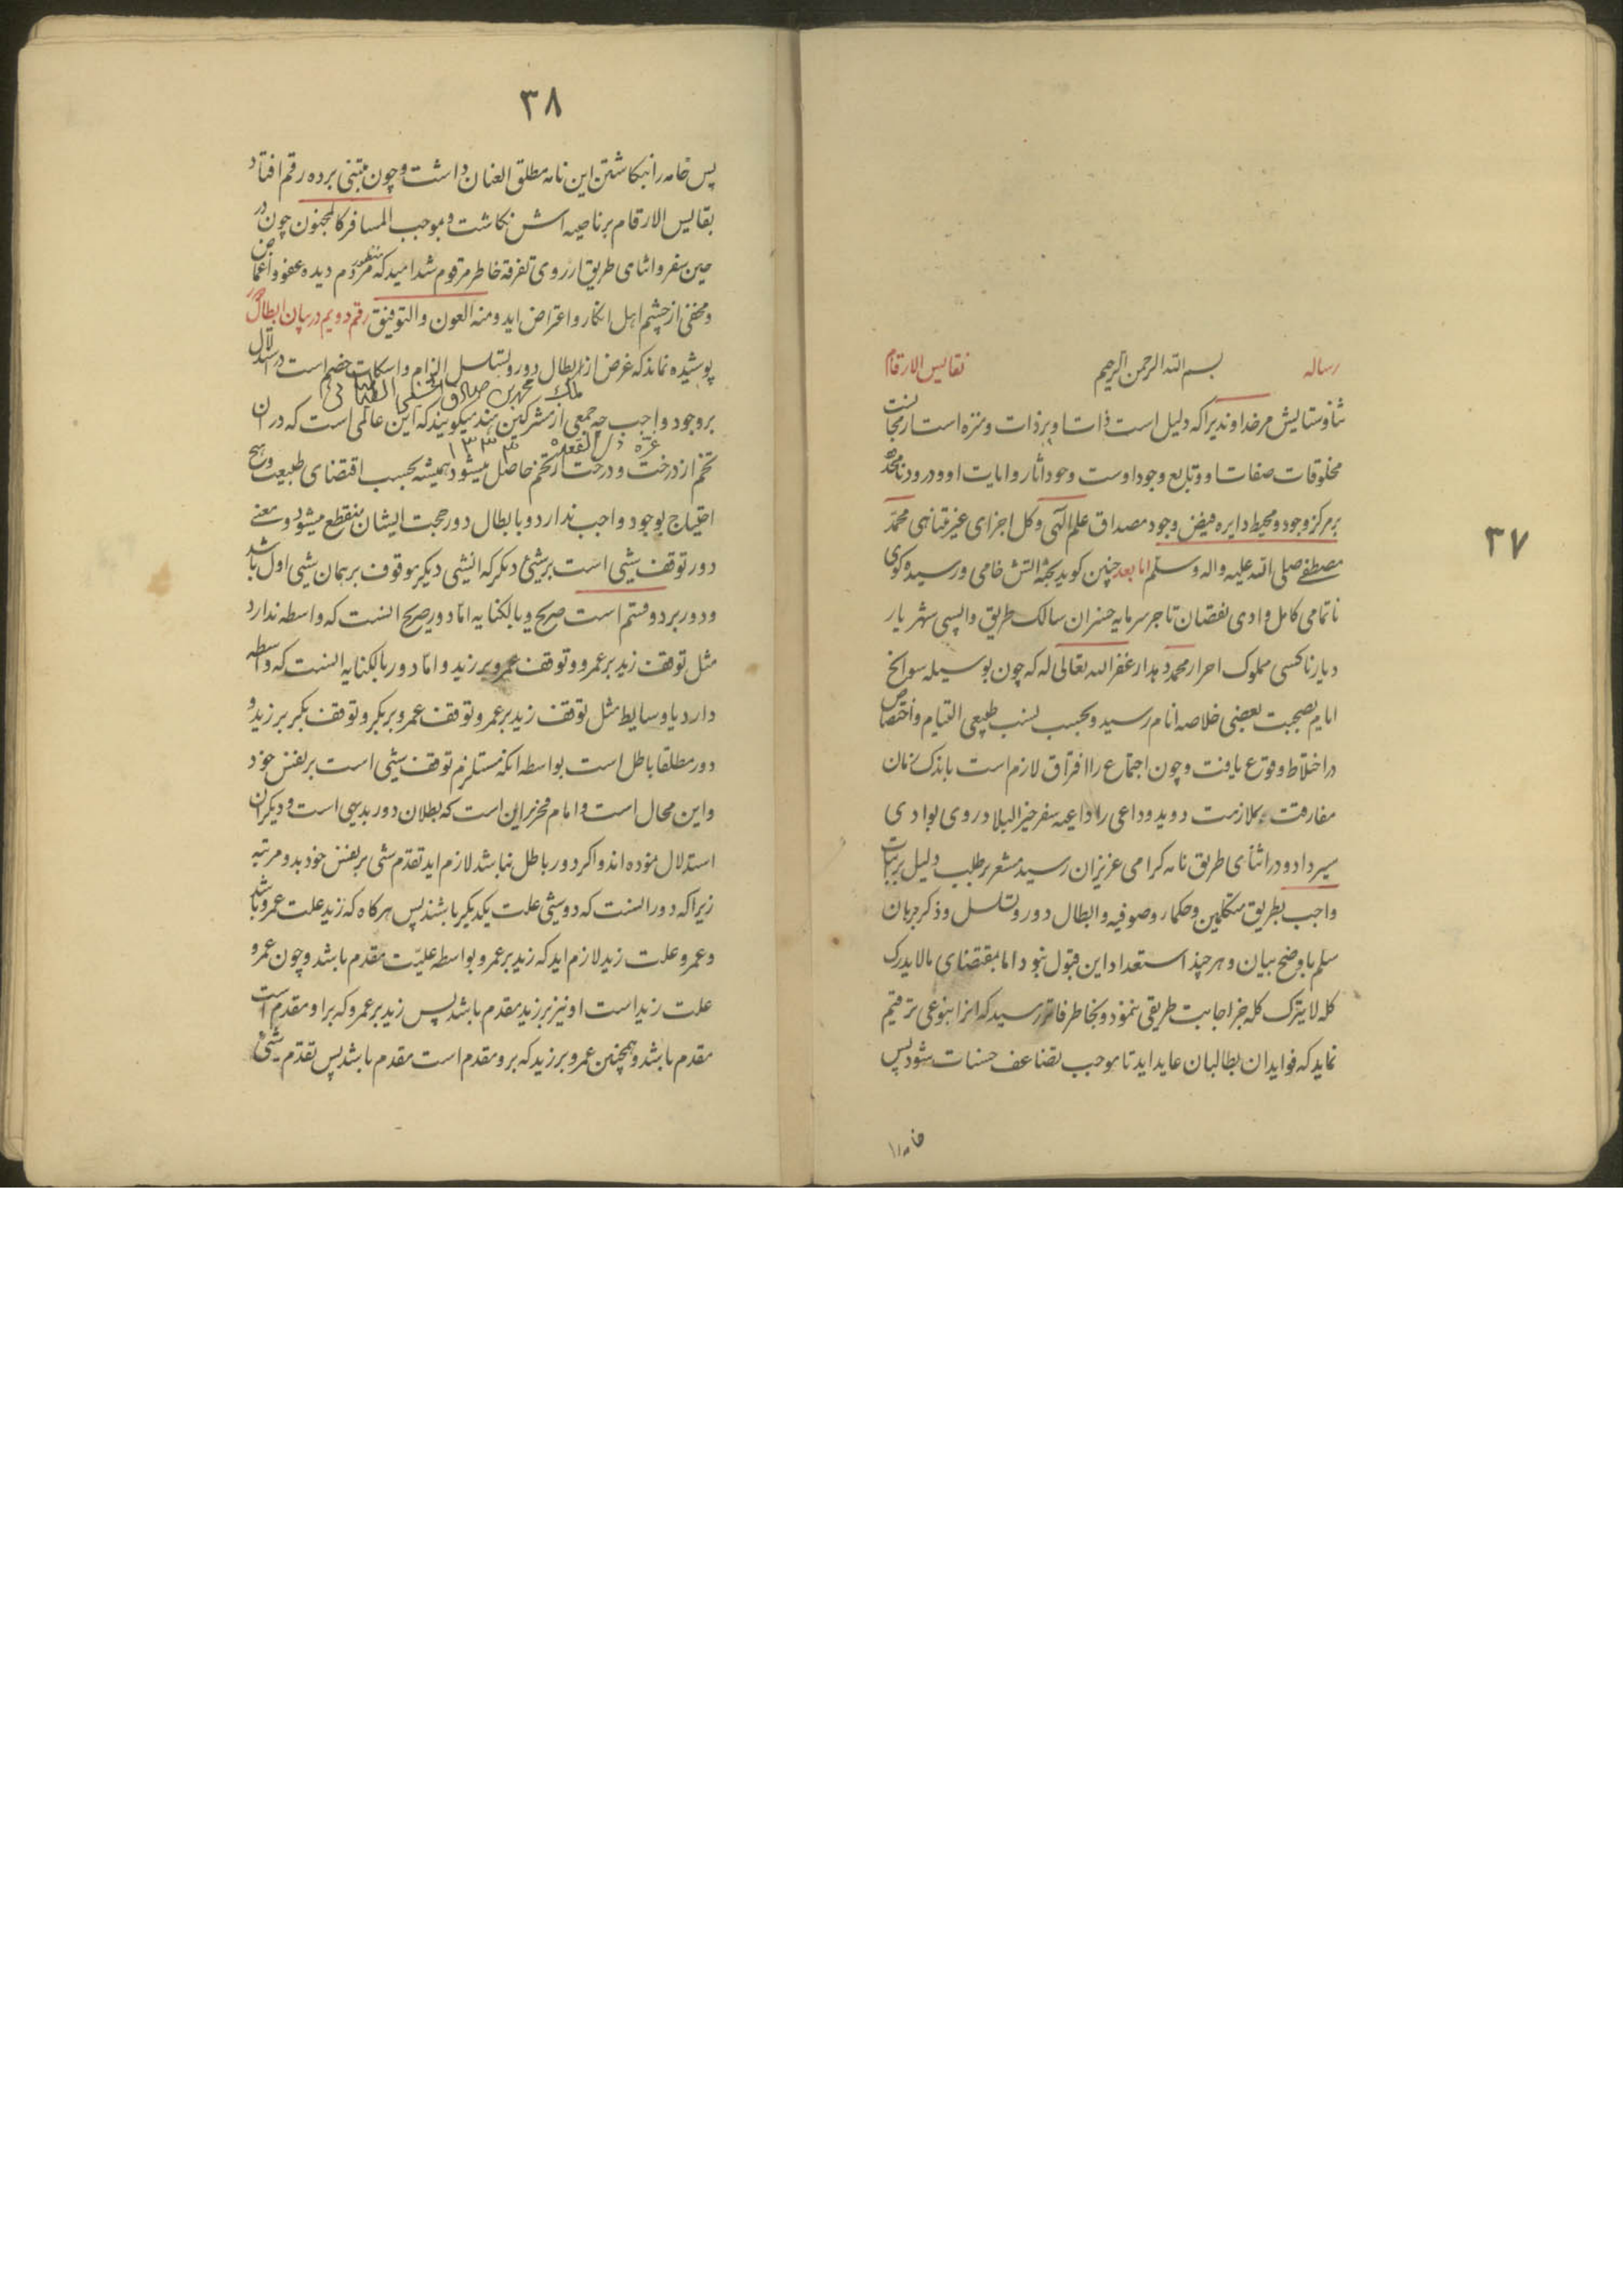 ۳۷
رساله بسم الله الرحمن الرحیم نفایس الارقام
ثنا و ستایش مر خداوندیرا که دلیل است ذات او بر ذات و منزه است از مجانست
مخلوقات صفات او و تابع وجود اوست وجود اثار و ایات او و درود نامحدود
بر مرکز وجود و محیط دایره فیض وجود مصداق علم الهی و کل اجزای غیر متناهی محمد
مصطفی صلی الله علیه واله وسلم اما بعد چنین کوید پخته اتش خامی و رسیده کوی
ناتمامی کامل وادی نقصان تاجر سرمایه خسران سالک طریق واپسی شهریار
دیار ناکسی مملوک احرار محمد دهدار غفر الله تعالی له که چون بوسیله سوانح
ایام بصحبت بعضی خلاصه انام رسید و بحسب نسب طبیعی التیام و اختصاص
در اختلاط وقوع یافت و چون اجتماع را افتراق لازم است باندک زمان
مفارقت بملازمت دوید و داعی را داعیه سفر خیر البلاد روی بوادی
سیر داد و در اثنای طریق نامه کرامی عزیزان رسید مشعر بر طلب دلیل بر اثبات
واجب بطریق متکلمین و حکماء و صوفیه و ابطال دور و تسلسل و ذکر برهان
سلم باوضح بیان و هر چند استعداد این قبول نبود اما بمقتضای مالا یدرک
کله لا یترک کله جز اجابت طریقی ننمود و بخاطر فاتر رسید که انرا بنوعی ترقیم
نماید که فواید ان بطالبان عاید اید تا موجب تضاعف حسنات شود پس
خامه را
۳۸
پس خامه را بنکاشتن این نامه مطلق العنان داشت و چون مبتنی بر ده رقم افتاد
بنفایس الارقام بر ناصیه اش نکاشت و بموجب المسافر کالمجنون چون در
حین سفر و اثنای طریق از روی تفرقه خاطر مرقوم شد امید که منظور مردم دیده عفو و اغماض
و مخفی از چشم اهل انکار و اعتراض اید و منه العون والتوفیق رقم دویم در بیان ابطال دور
پوشیده نماند که غرض از ابطال دور و تسلسل الزام و اسکات خصم است در استدلال
ملک محمد بن صادق الطباطبائی
بر وجود واجب چه جمعی از مشرکین هند میکویند که این عالمی است که در ان
غره ذی القعده ۱۳۳۳
تخم از درخت و درخت از تخم حاصل میشود همیشه بحسب اقتضای طبیعت و هیچ
احتیاج بوجود واجب ندارد و بابطال دور حجت ایشان منقطع میشود و معنی
دور توقف شیئی است بر شیئ دیکر که انشیئی دیکر موقوف بر همان شیئی اول باشد
و دور بر دو قسم است صریح و بالکنایه اما دور صریح انست که واسطه ندارد
مثل توقف زید بر عمرو و توقف عمرو بر زید و اما دور بالکنایه انست که واسطه
دارد یا وسایط مثل توقف زید بر عمرو توقف عمرو بر بکر و توقف بکر بر زید و
دور مطلقا باطل است بواسطه انکه مستلزم توقف شیئی است بر نفس خود
و این محال است و امام فخر بر این است که بطلان دور بدیهی است و دیکران
استدلال نموده اند و اکر دور باطل نباشد لازم اید تقدم شئی بر نفس خود بدو مرتبه
زیرا که دور انست که دو شیئی علت یکدیکر باشند پس هر کاه که زید علت عمرو باشد
و عمرو علت زید لازم اید که زید بر عمرو بواسطه علیت مقدم باشد و چون عمرو
علت زید است او نیز بر زید مقدم باشد پس زید بر عمرو که بر او مقدم است
مقدم باشد و همچنین عمرو بر زید که برو مقدم است مقدم باشد پس تقدم شیئ